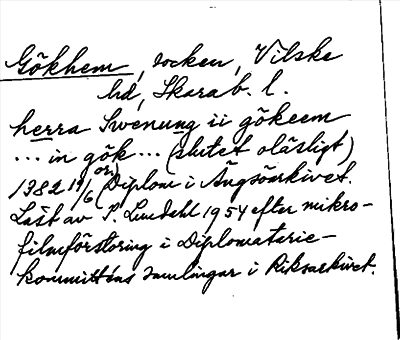 Gökhem, socken, Vilske
hd, Skarab. l.
herra Swenung ii gökeem
... in gök... (slutet oläsligt)
1382 19/6 (or) Diplom i Ängsöarkivet.
Läst av P. Lundahl 1954 efter mikro-
filmförstoring i Diplomatarie-
kommitténs samlingar i Riksarkivet.